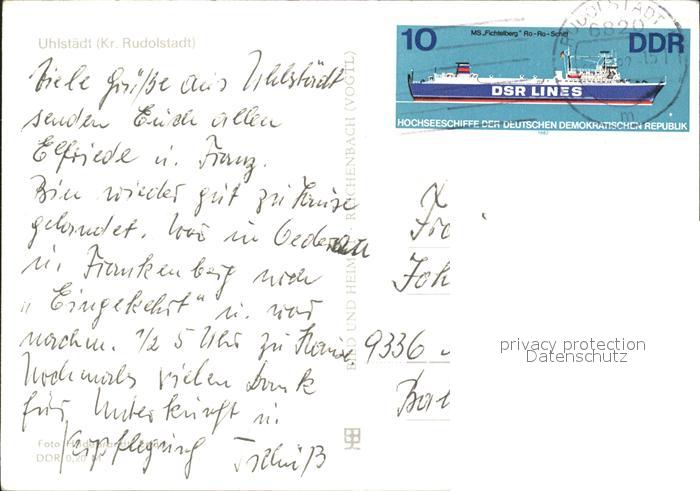 Uhlstädt (Kr. Rudolstadt)
Viele Grüße aus Uhlstädt
senden Euch allen
Elfriede u. Franz.
Bin wieder gut zu Hause
gelandet. War in Oederan
u. Frankenberg noch
"Eingekehrt" u. war
nachm. 1/2 5 Uhr zu Hause
Nochmals vielen Dank
für Unterkunft u.
Verpflegung Tschüß
Foto
DDR 0,20 M
BILD UND HEIMAT REICHENBACH (VOGTL)
10
MS „Fichtelberg" Ro-Ro-Schiff
DDR
DSR LINES
HOCHSEESCHIFFE DER DEUTSCHEN DEMOKRATISCHEN REPUBLIK
1982
RUDOLSTADT
6820
m
Joh
9336
privacy protection
Datenschutz